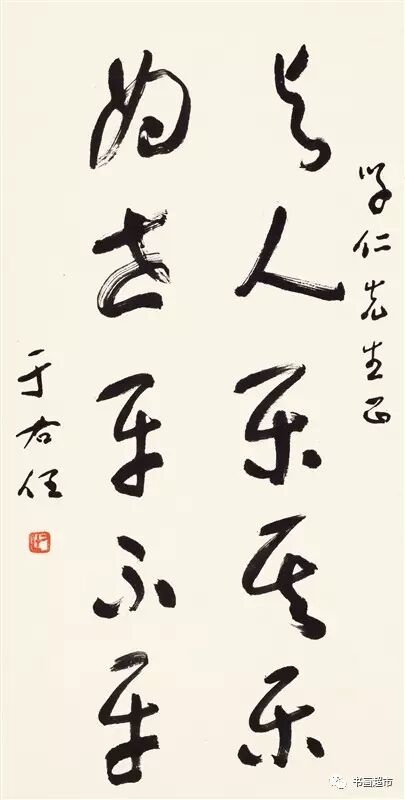 学仁先生正
与人乐其乐
为世平不平
于右任
书画超市